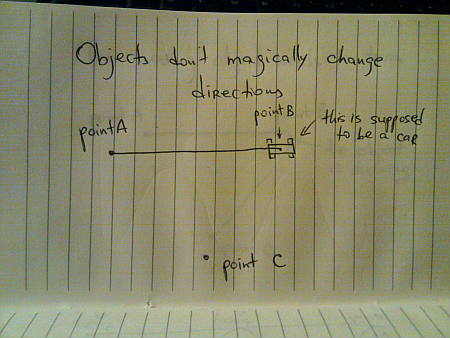 Objects don't magically change
directions
pointB
pointA
this is supposed
to be a car
point C